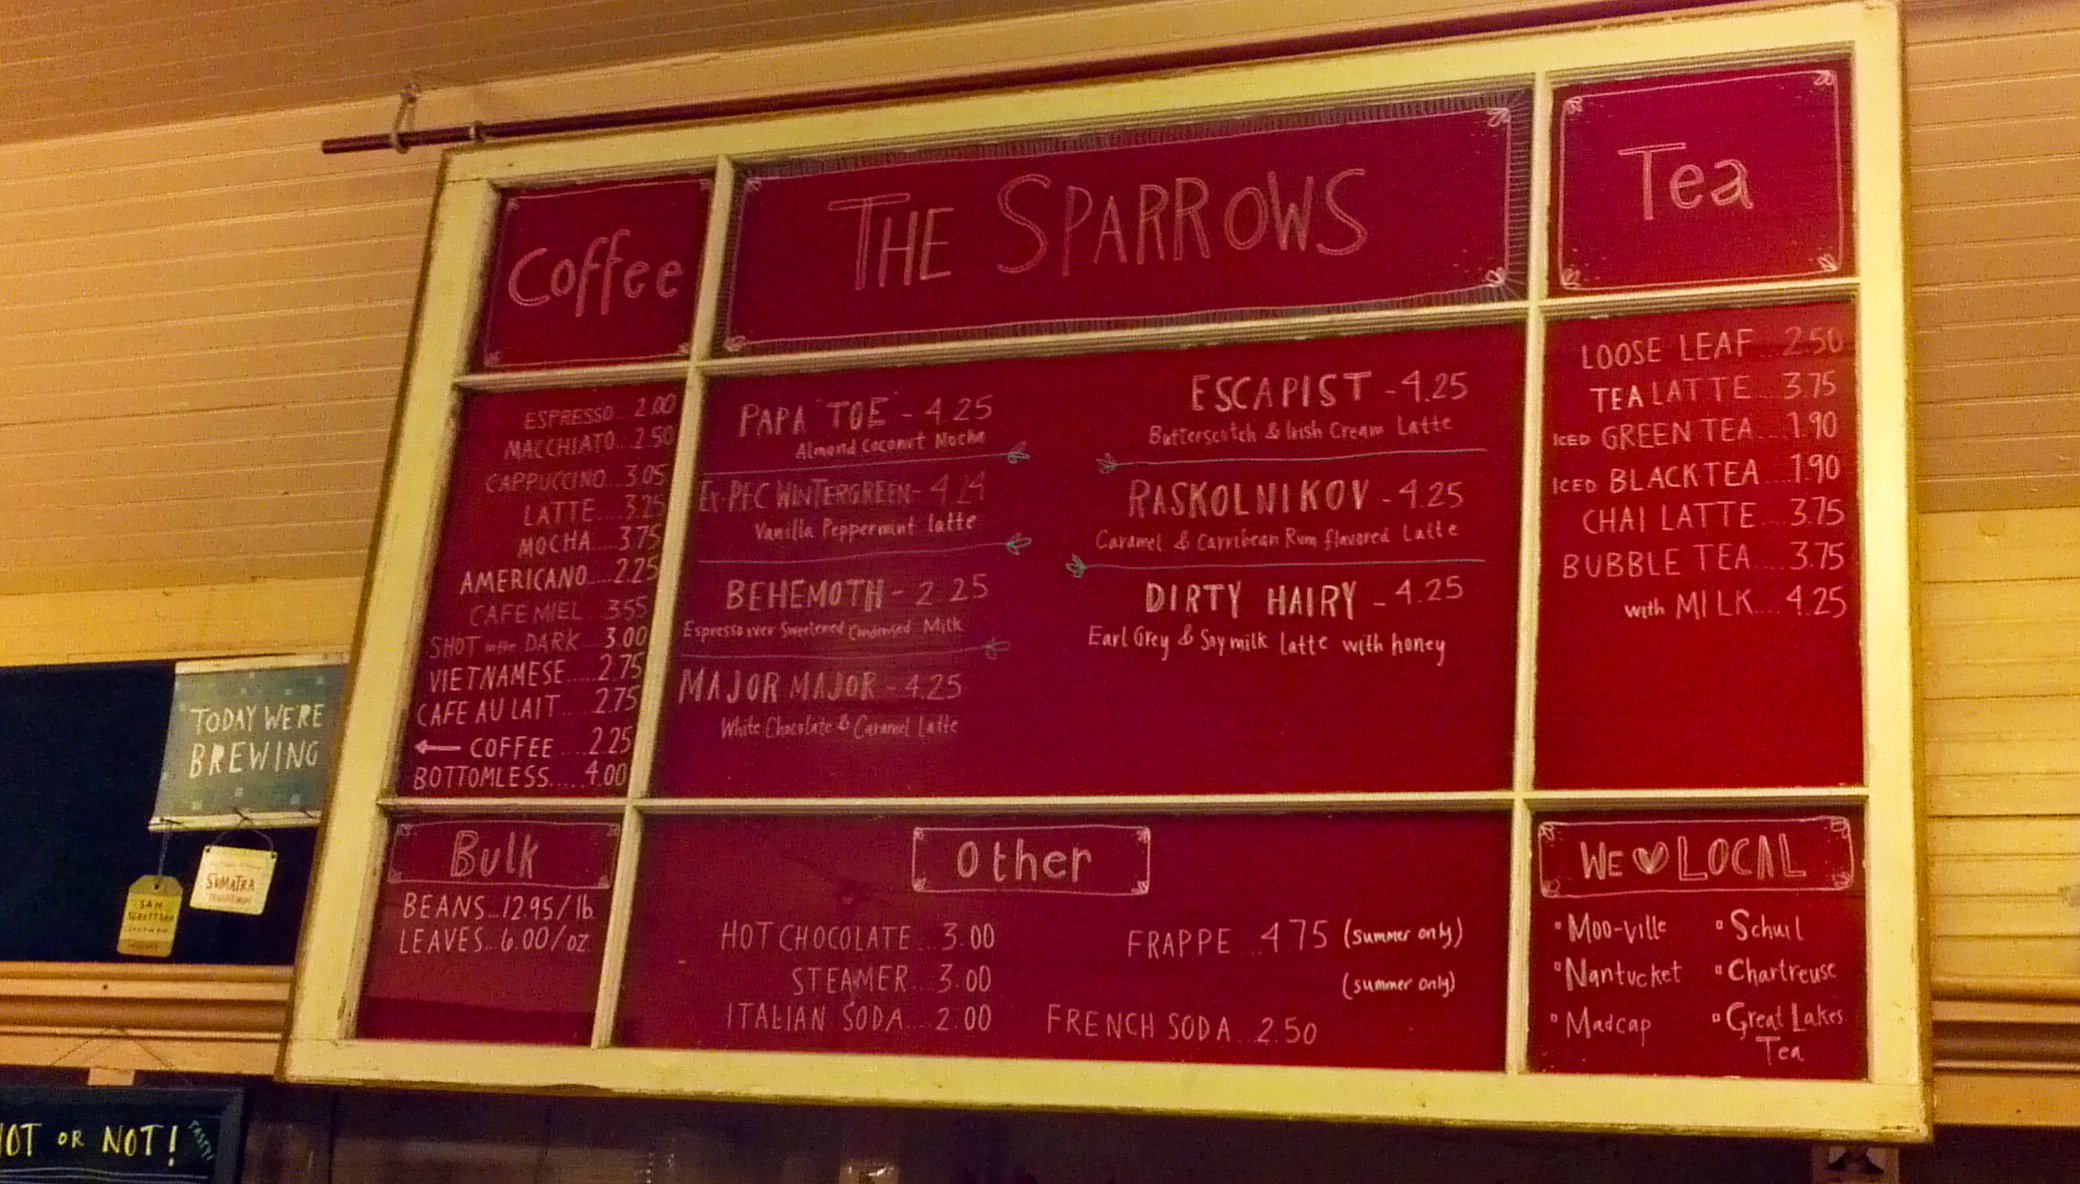 THE SPARROWS
Coffee
ESPRESSO...2.00
MACCHIATO...2.50
CAPPUCCINO...3.05
LATTE....3.25
MOCHA....3.75
AMERICANO....2.25
CAFE MIEL 3.55
SHOT in the DARK 3.00
VIETNAMESE....2.75
CAFE AU LAIT....2.75
COFFEE....2.25
BOTTOMLESS.....4.00
PAPA TOE - 4.25
Almond Coconut Mocha
Ex-PFC WINTERGREEN - 4.24
Vanilla Peppermint latte
BEHEMOTH - 2.25
Espresso over Sweetened Condensed Milk
MAJOR MAJOR - 4.25
White Chocolate & Caramel Latte
ESCAPIST - 4.25
Butterscotch & Irish Cream Latte
RASKOLNIKOV - 4.25
Caramel & Carribean Rum flavored Latte
DIRTY HAIRY - 4.25
Earl Grey & Soymilk latte with honey
Tea
LOOSE LEAF 2.50
TEA LATTE 3.75
ICED GREEN TEA....1.90
ICED BLACK TEA....1.90
CHAI LATTE....3.75
BUBBLE TEA....3.75
with MILK....4.25
Bulk
BEANS...12.95/lb
LEAVES...6.00/oz
Other
HOT CHOCOLATE...3.00
STEAMER...3.00
ITALIAN SODA....2.00
FRAPPE ..4.75 (summer only)
(summer only)
FRENCH SODA...2.50
WE LOCAL
Moo-ville
Nantucket
Madcap
Schuil
Chartreuse
Great Lakes
Tea
TODAY WE'RE
BREWING
SUMATRA
SAN
SEBASTIAN
OT OR NOT!
TASTY!